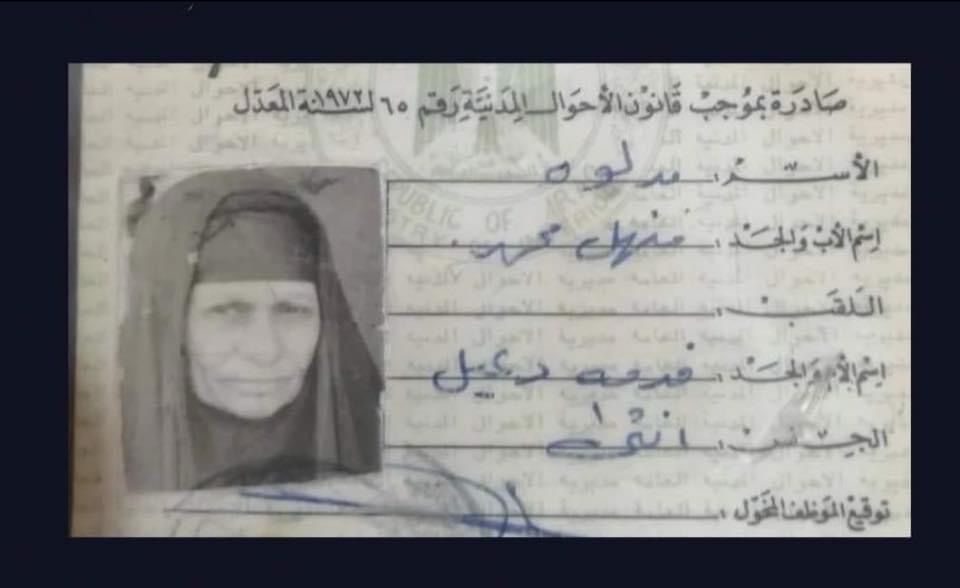 صادرة بموجب قانون الأحوال المدنية رقم ٦٥ لسنة ١٩٧٢ المعدل
الأســم : مدلوه
إسم الأب والجد : منهل محمد
اللقب :
إسم الأم والجد : دعيبل
الجنس : انثى
توقيع الموظف المخول :
REPUBLIC OF IRAQ